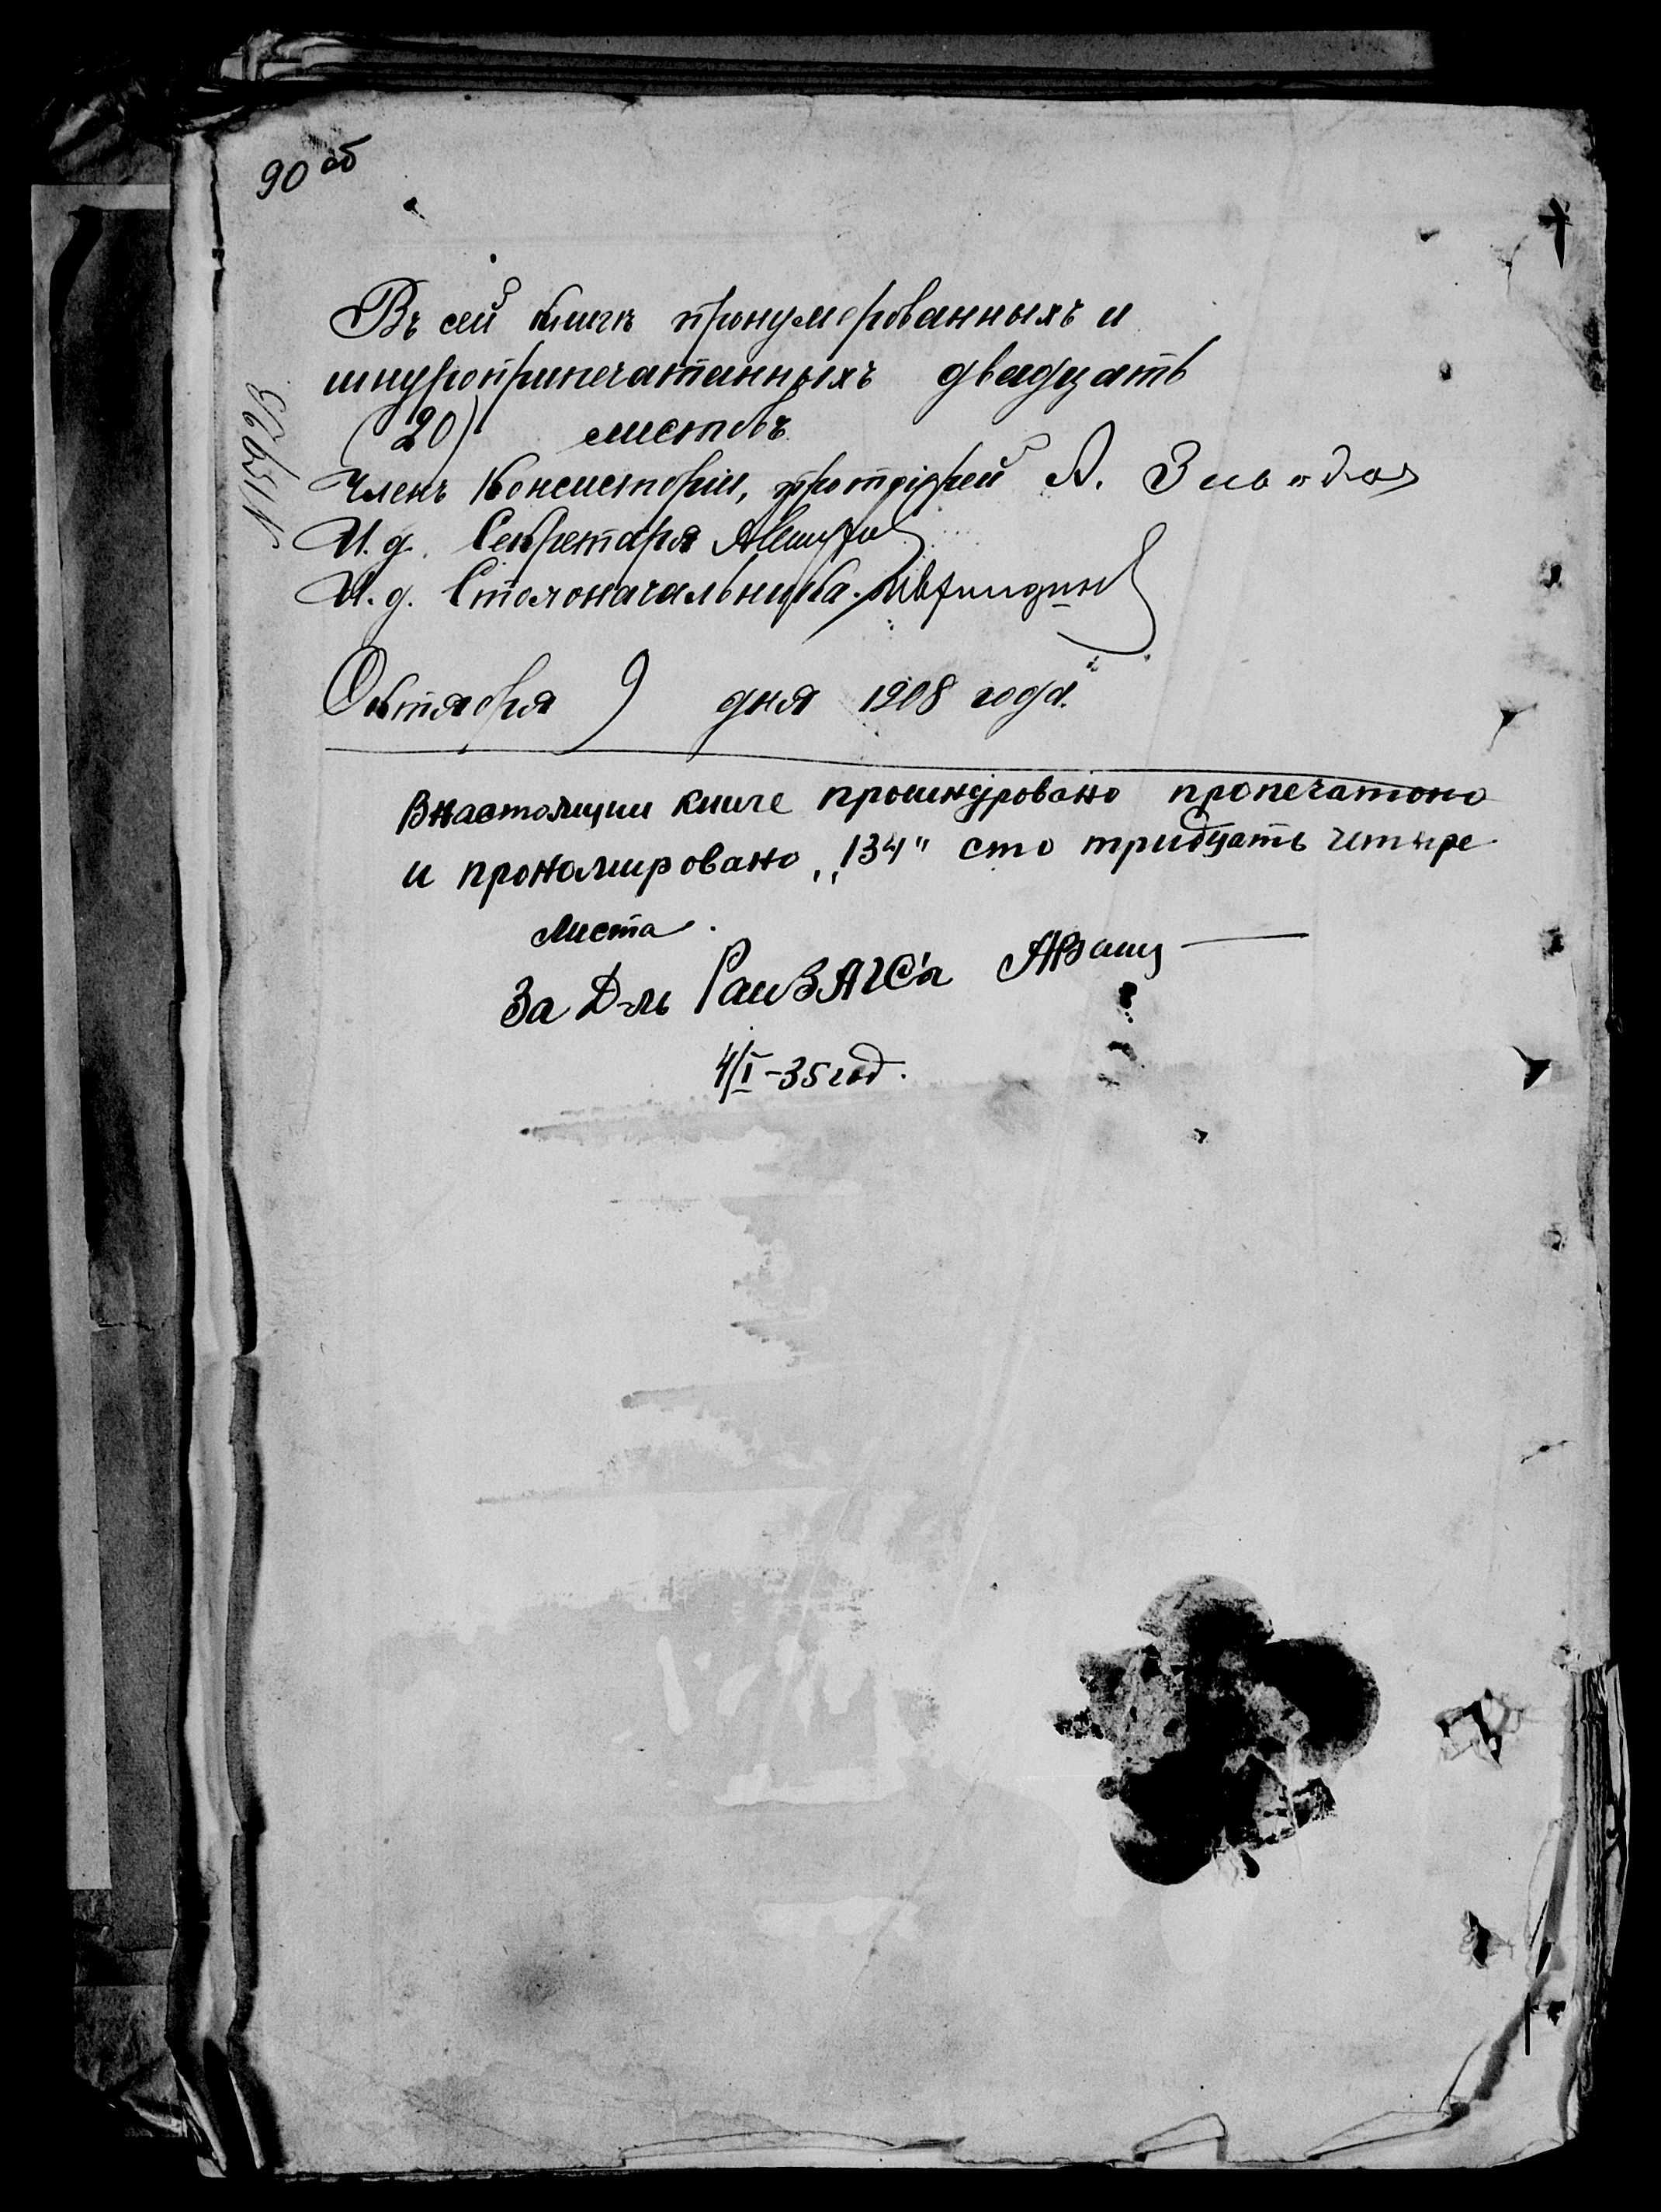 90 об
Въ сей книгѣ пронумерованныхъ и
шнуроприпечатанныхъ двадцать
(20) листовъ
N 15923
Членъ Консисторіи, протоіерей А.
И. д. Секретаря
И. д. Столоначальника
Октября 9 дня 1908 года.
В настоящии книге прошнуровано пропечатоно
и прономировано „134" сто тридцать четыре
листа.
За Д-ль РаиЗАГС'а
4/I-35 год.